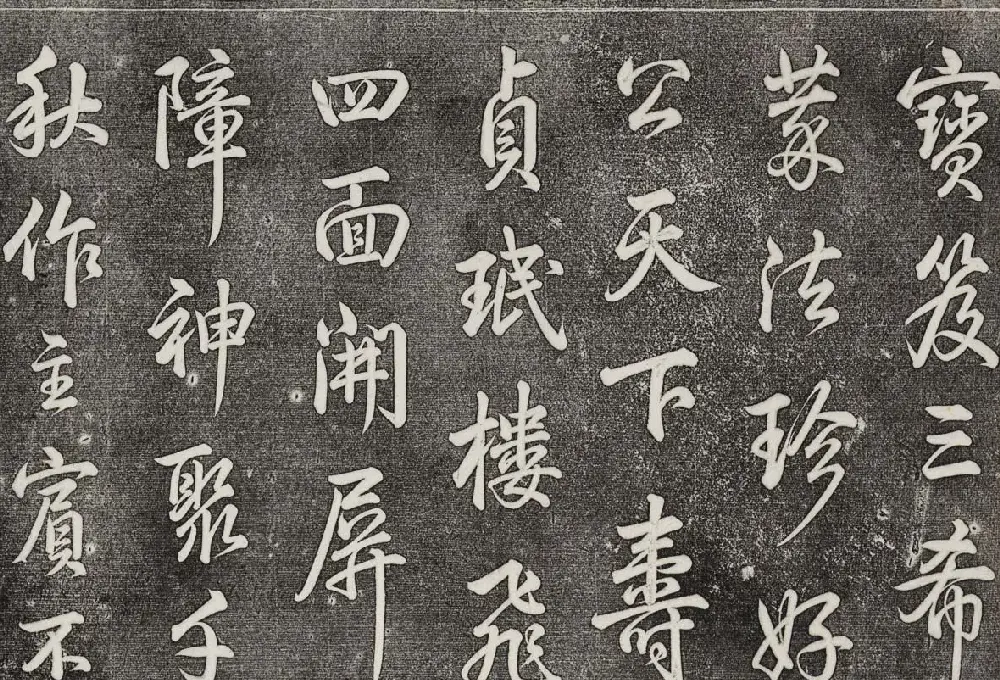 寶笈三希
蒙法珍好
公天下壽
貞珉樓飛
四面開屏
障神聚千
秋作主賓不